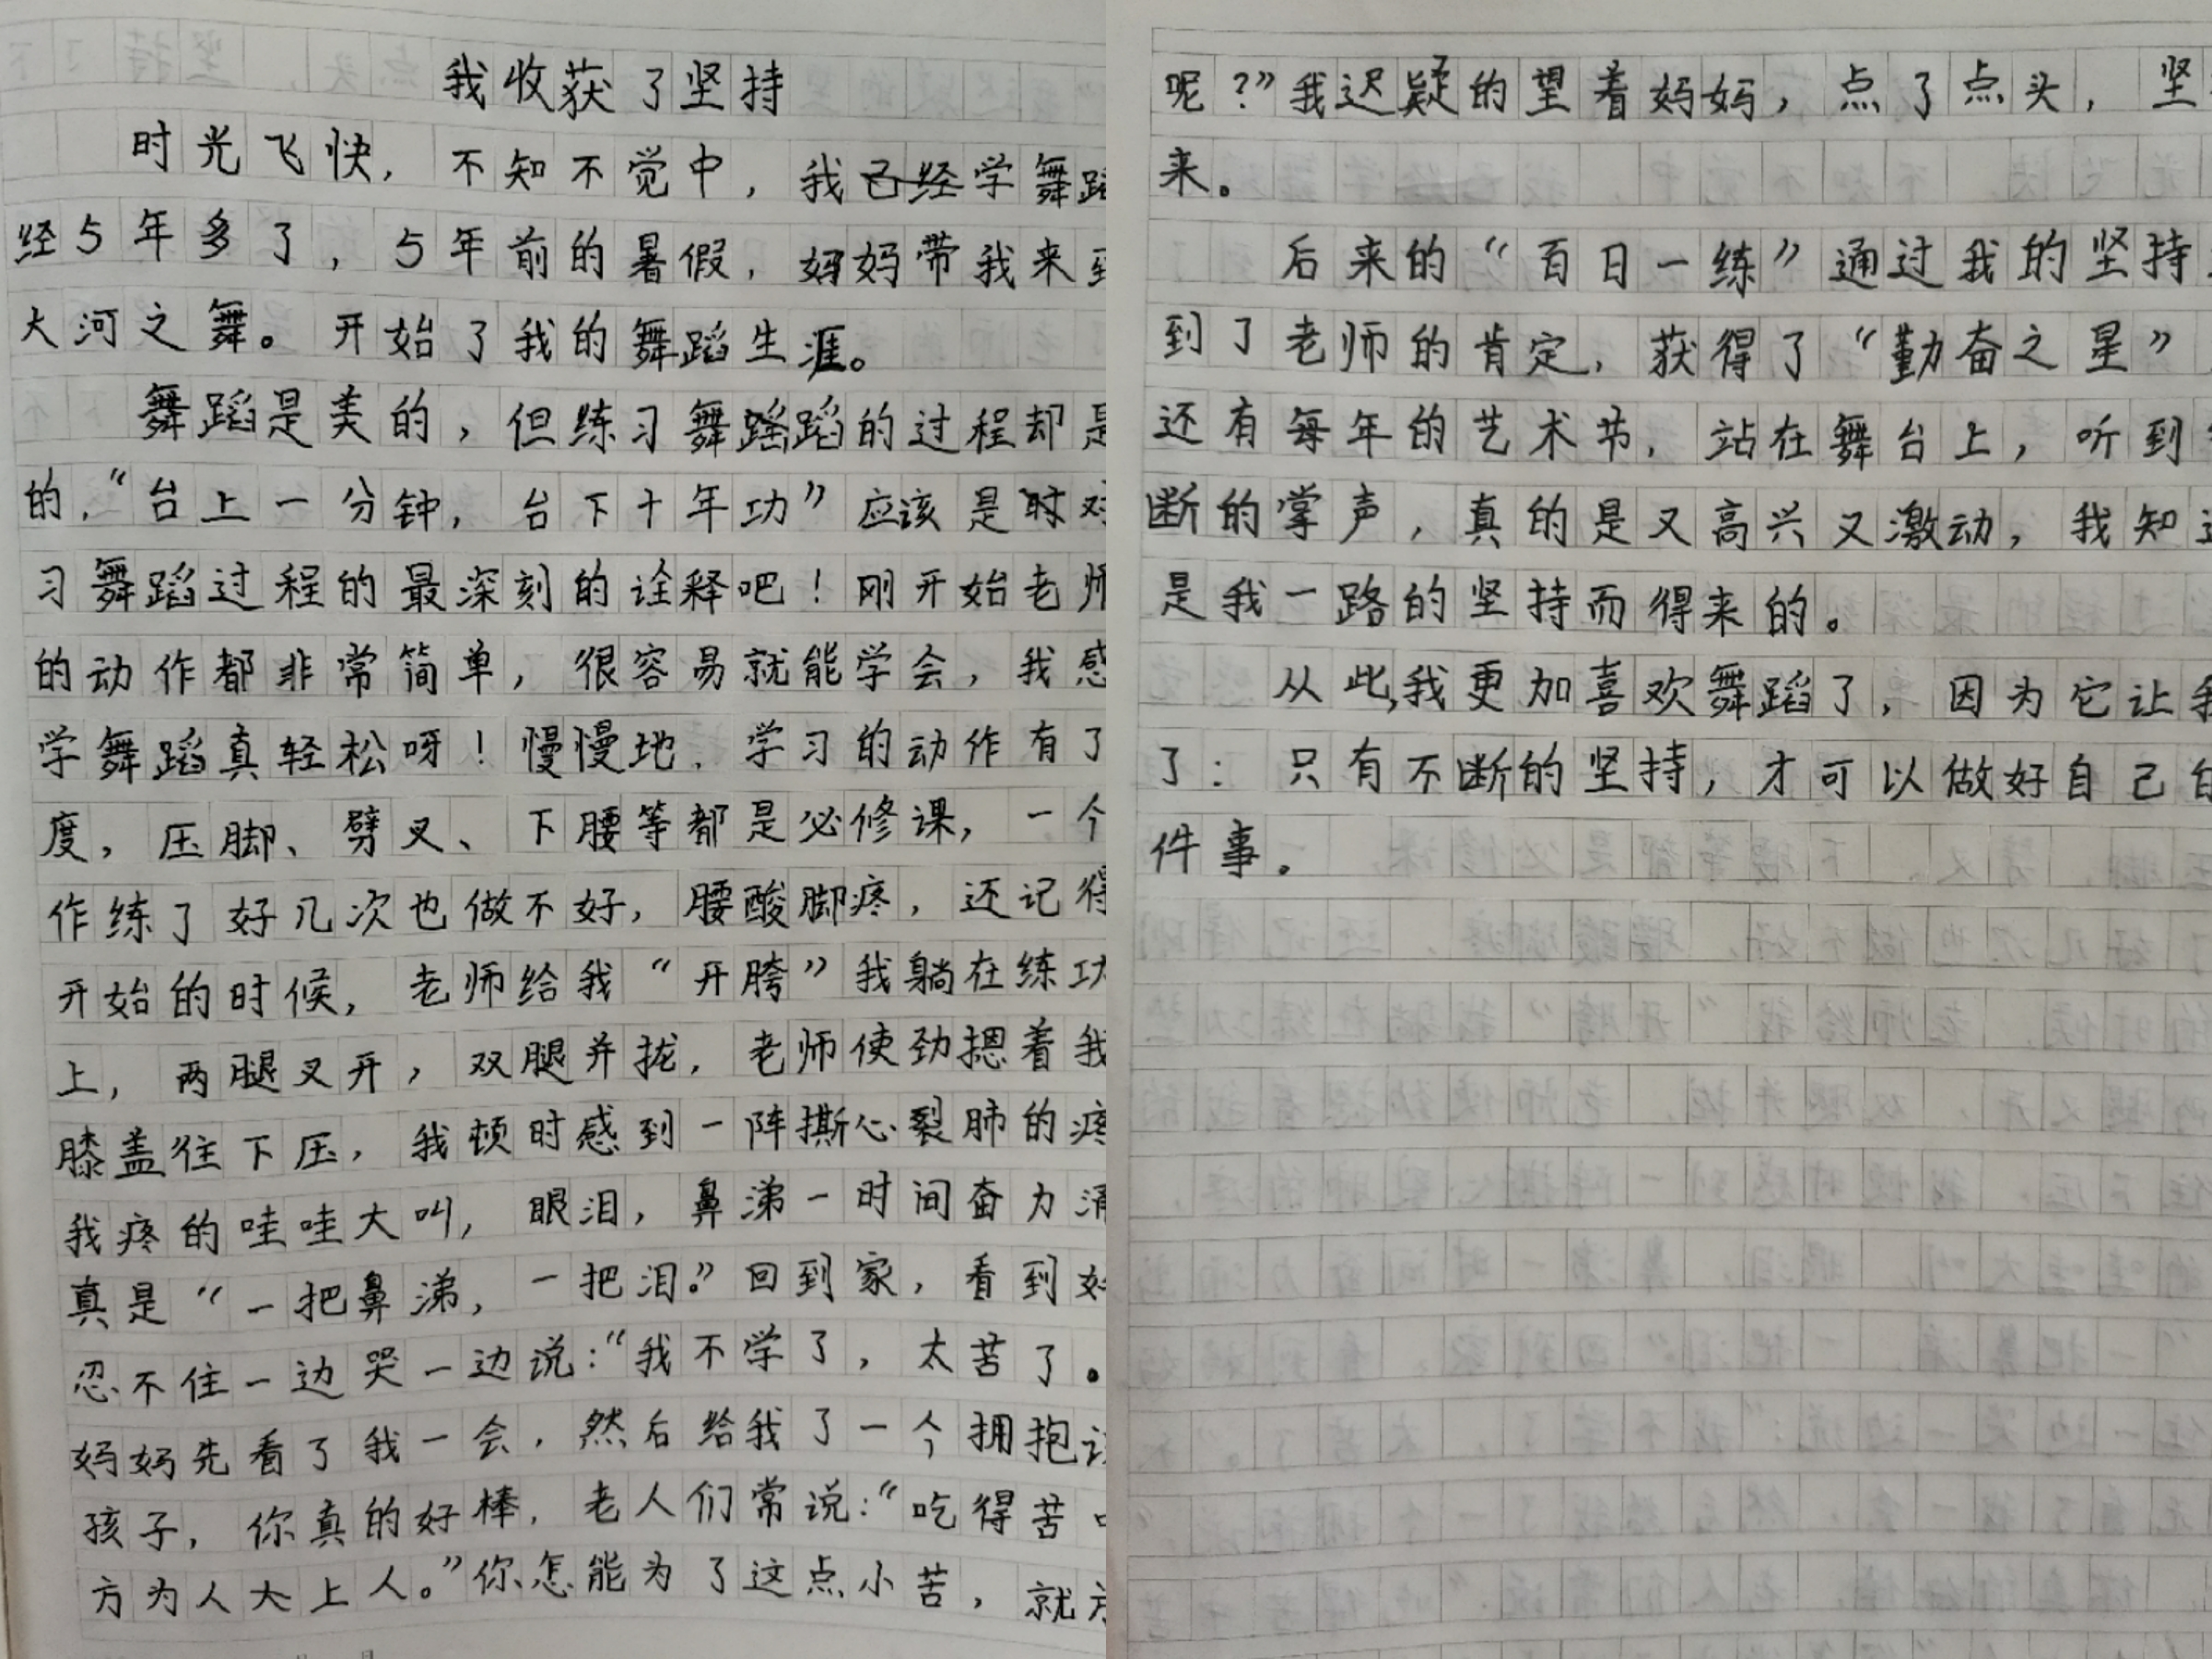 我收获了坚持
时光飞快，不知不觉中，我已经学舞蹈
经5年多了，5年前的暑假，妈妈带我来到
大河之舞。开始了我的舞蹈生涯。
舞蹈是美的，但练习舞蹈蹈的过程却是
的，“台上一分钟，台下十年功”应该是时对
习舞蹈过程的最深刻的诠释吧！刚开始老师
的动作都非常简单，很容易就能学会，我感
学舞蹈真轻松呀！慢慢地，学习的动作有了
度，压脚、劈叉、下腰等都是必修课，一个
作练了好几次也做不好，腰酸脚疼，还记得
开始的时候，老师给我“开胯”我躺在练功
上，两腿叉开，双腿并拢，老师使劲摁着我
膝盖往下压，我顿时感到一阵撕心裂肺的疼
我疼的哇哇大叫，眼泪，鼻涕一时间奋力涌
真是“一把鼻涕，一把泪。”回到家，看到妈
忍不住一边哭一边说：“我不学了，太苦了。
妈妈先看了我一会，然后给我了一个拥抱说
孩子，你真的好棒，老人们常说：“吃得苦中
方为人大上人。”你怎能为了这点小苦，就放
呢？”我迟疑的望着妈妈，点了点头，坚
来。
后来的“百日一练”通过我的坚持
到了老师的肯定，获得了“勤奋之星”
还有每年的艺术节，站在舞台上，听到
断的掌声，真的是又高兴又激动，我知道
是我一路的坚持而得来的。
从此，我更加喜欢舞蹈了，因为它让我
了：只有不断的坚持，才可以做好自己的
件事。